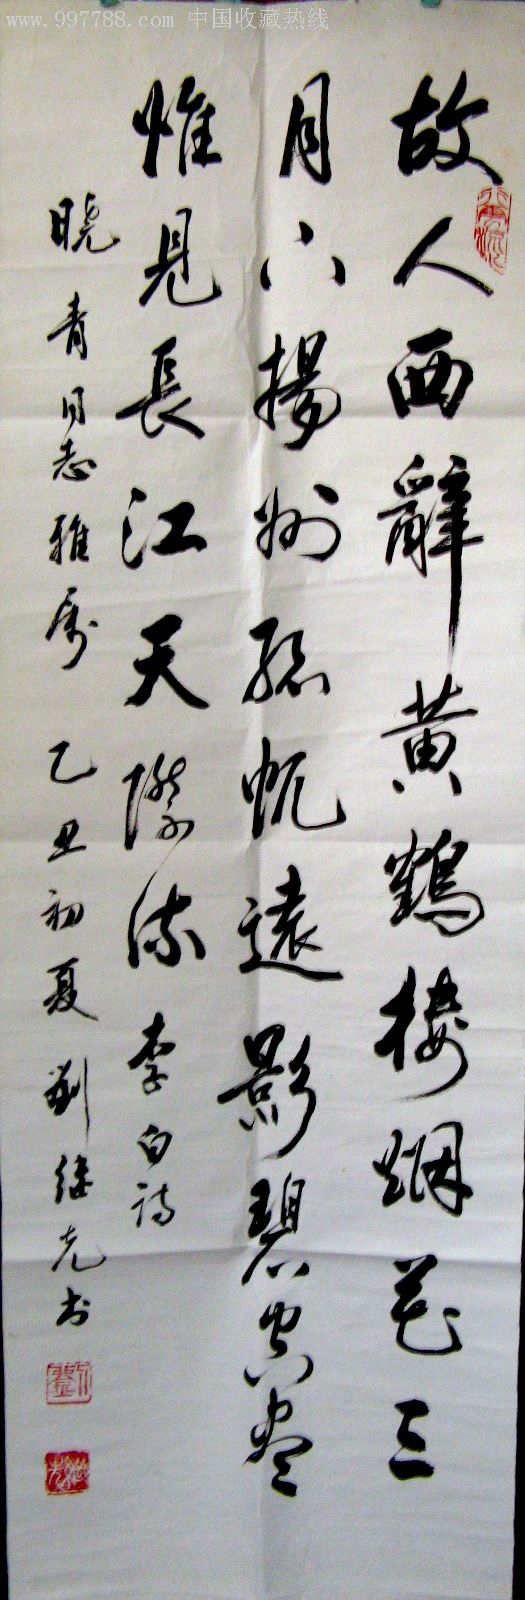 www.997788.com 中国收藏热线
故人西辭黄鶴楼烟花三
月下揚州孤帆遠影碧空尽
惟見長江天際流 李白詩
晓青同志雅属 乙丑初夏 劉继先书